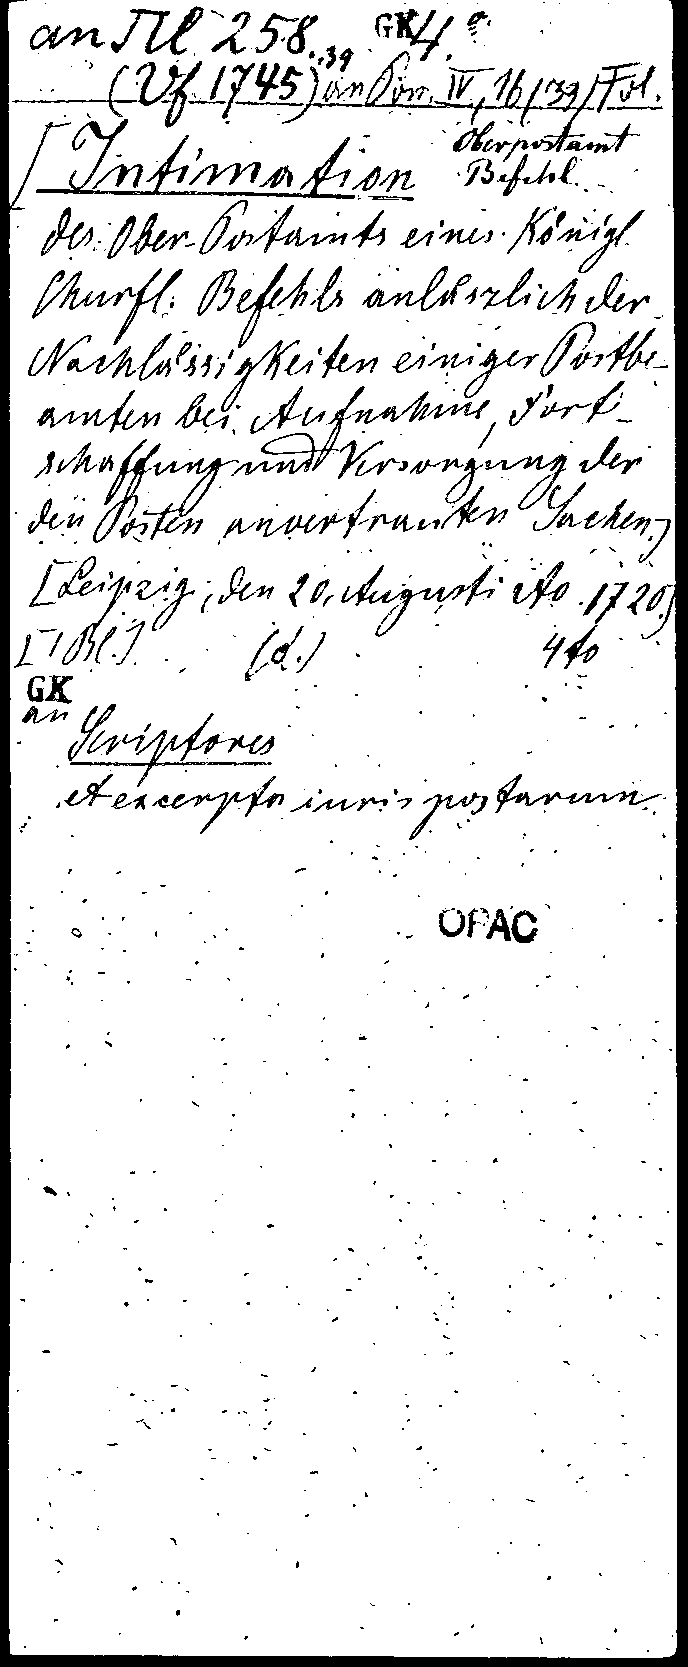 an 258.39 GK 4°
(Vf. 1745) an Pon. IV, 16 (39) Fol.
[Intimation Oberpostamt
Befehl
des Ober-Postamts eines Königl
Churfl: Befehls anlässlich der
Nachlässigkeiten einiger Postbe-
amten bei Aufnahme, Fort-
schaffung und Versorgung der
den Posten anvertrauten Sachen.]
[Leipzig, den 20. Augusti Ao. 1720.]
[1 Bl.] (d.) 4to
GK
an
Scriptores
et excerpta iuris postarum
OPAC